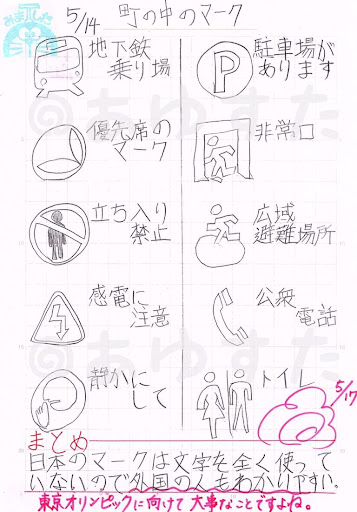 みました
5/14 町の中のマーク
地下鉄
乗り場
P
駐車場が
あります
優先席の
マーク
非常口
立ち入り
禁止
広域
避難場所
感電に
注意
公衆
電話
静かに
して
トイレ
5/17
まとめ
日本のマークは文字を全く使って
いないので外国の人もわかりやすい。
東京オリンピックに向けて大事なことですよね。
@あゆすた
@あゆすた